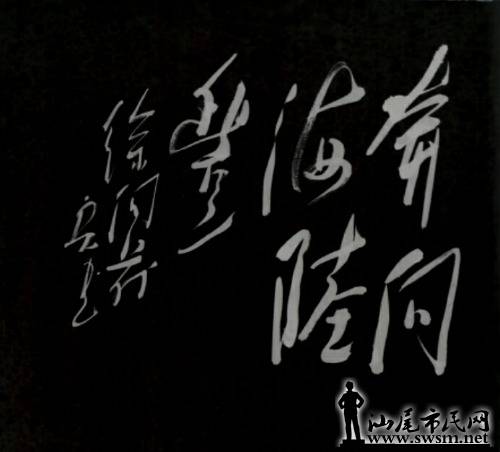 奔向
海陸
豐
徐向前
汕尾市民网
www.swsm.net